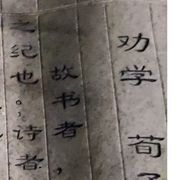 劝学 荀
故书者，
之纪也。；诗者